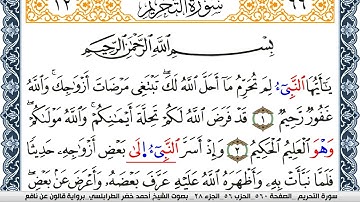 ٦٦ سُورَةُ التَّحْرِيمِ ١٢
بِسْمِ اللَّهِ الرَّحْمَٰنِ الرَّحِيمِ
يَٰأَيُّهَا النَّبِيءُ لِمَ تُحَرِّمُ مَا أَحَلَّ اللَّهُ لَكَ تَبْتَغِي مَرْضَاتَ أَزْوَٰجِكَ وَاللَّهُ
غَفُورٌ رَّحِيمٌ ١ قَدْ فَرَضَ اللَّهُ لَكُمْ تَحِلَّةَ أَيْمَٰنِكُمْ وَاللَّهُ مَوْلَىٰكُمْ
وَهْوَ الْعَلِيمُ الْحَكِيمُ ٢ وَإِذْ أَسَرَّ النَّبِيءُ إِلَىٰ بَعْضِ أَزْوَٰجِهِ حَدِيثًا
فَلَمَّا نَبَّأَتْ بِهِ وَأَظْهَرَهُ اللَّهُ عَلَيْهِ عَرَّفَ بَعْضَهُ وَأَعْرَضَ عَنْ بَعْضٍ
سورة التحريم الصفحة ٥٦٠ الحزب ٥٦ الجزء ٢٨ بصوت الشيخ أحمد خضر الطرابلسي برواية قالون عن نافع